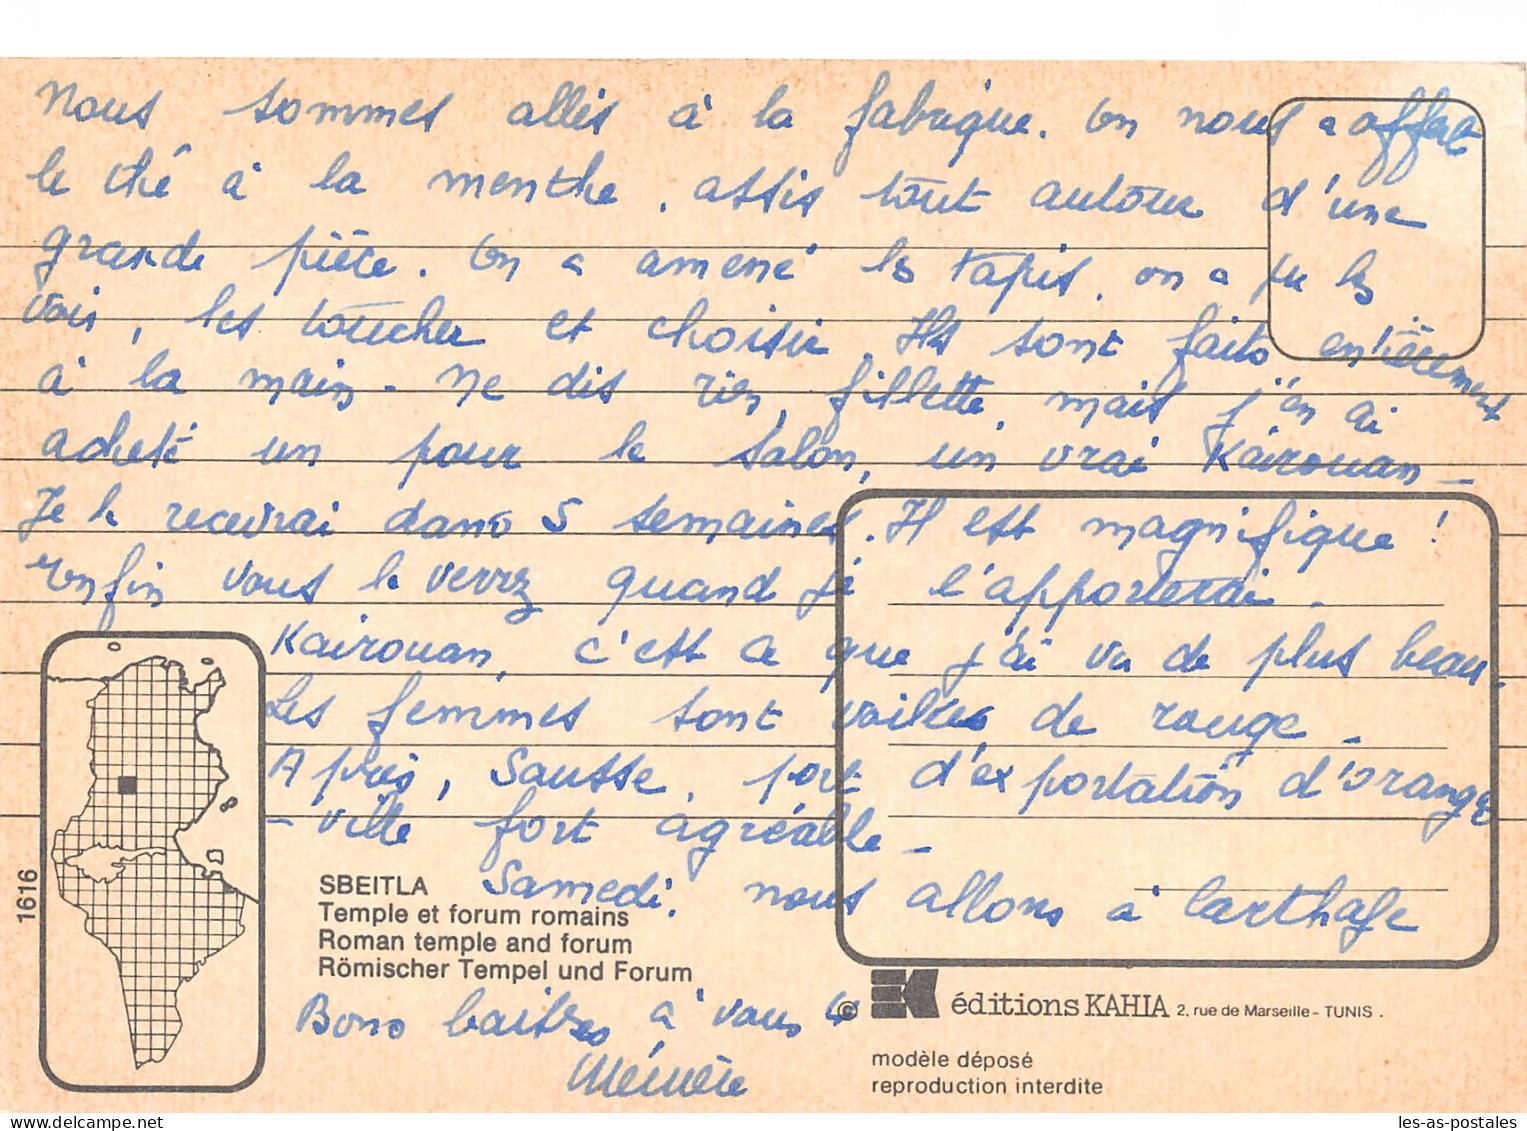 Nous sommes allés à la fabrique. On nous a offert
le thé à la menthe, assis tout autour d'une
grande pièce. On a amené les tapis, on a pu les
voir, les toucher et choisir. Ils sont faits entièrement
à la main - Ne dis rien, fillette, mais j'en ai
acheté un pour le salon, un vrai Kairouan -
Je le recevrai dans 5 semaines. Il est magnifique !
enfin vous le verrez quand je l'apporterai.
Kairouan, c'est ce que j'ai vu de plus beau.
Les femmes sont voilées de rouge -
Après, Sousse, port d'exportation d'orange
- ville fort agréable -
Samedi, nous allons à Carthage
SBEITLA
Temple et forum romains
Roman temple and forum
Römischer Tempel und Forum
1616
Bons baisers à vous
Mémère
© éditions KAHIA 2, rue de Marseille - TUNIS .
modèle déposé
reproduction interdite
les-as-postales